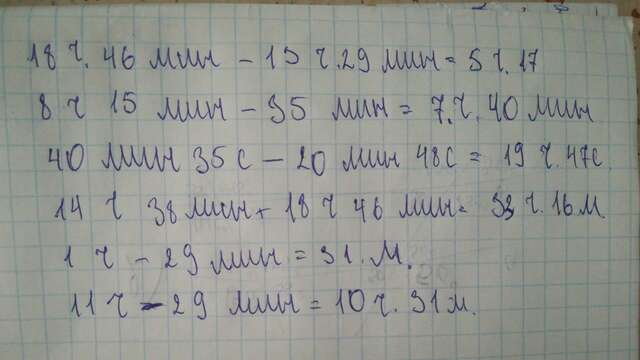 18 ч. 46 мин – 13 ч. 29 мин = 5 ч. 17
8 ч 15 мин – 35 мин = 7.ч. 40 мин
40 мин 35 с – 20 мин 48 с = 19 ч. 47 с.
14 ч 38 мин + 18 ч 46 мин = 33 ч. 16 м.
1 ч – 29 мин = 31. м.
11 ч – 29 мин = 10 ч. 31 м.